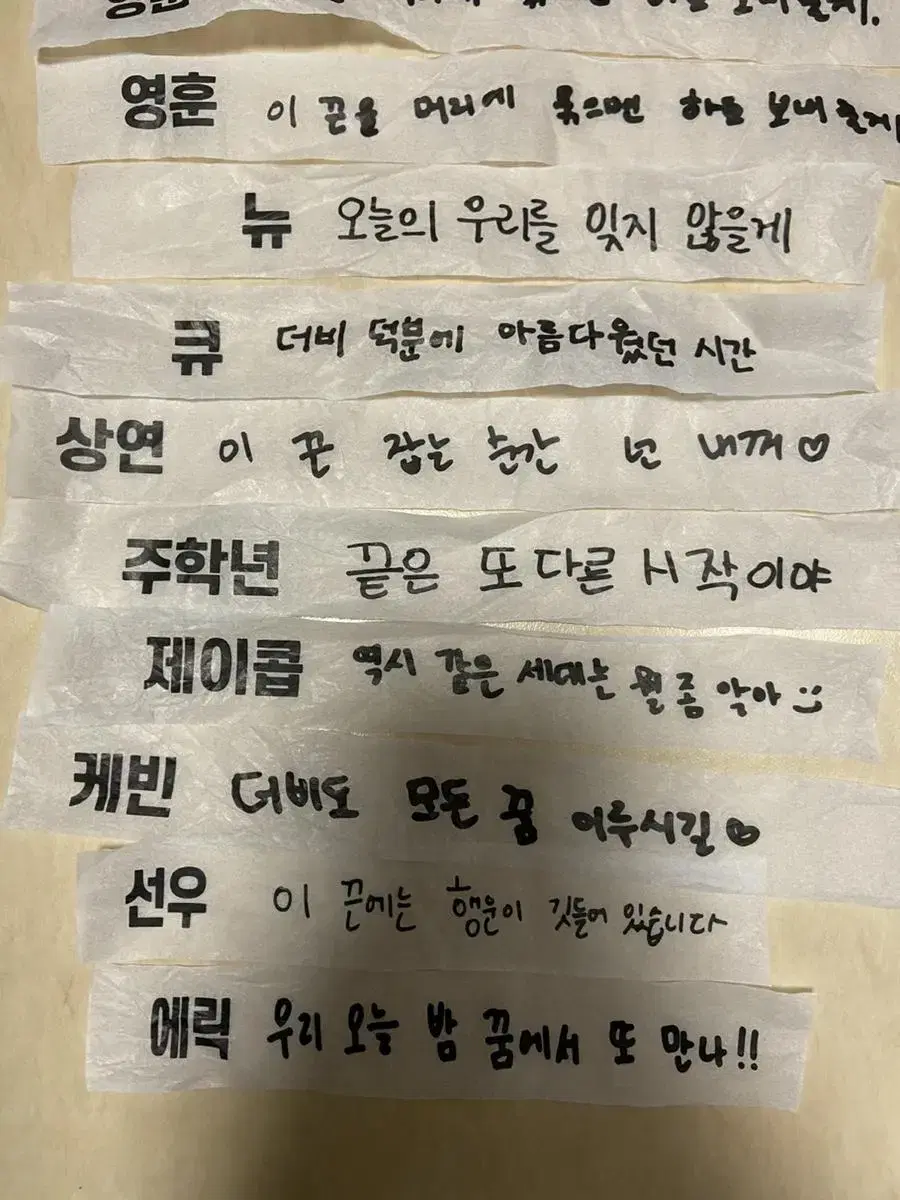 영훈 이 끈을 머리에 묶으면 하트 보내줄게
뉴 오늘의 우리를 잊지 않을게
큐 더비 덕분에 아름다웠던 시간
상연 이 끈 잡는 순간 넌 내꺼♡
주학년 끝은 또 다른 시작이야
제이콥 역시 같은 세대는 뭘 좀 알아 :)
케빈 더비도 모든 꿈 이루시길♡
선우 이 끈에는 행운이 깃들어 있습니다
에릭 우리 오늘 밤 꿈에서 또 만나!!